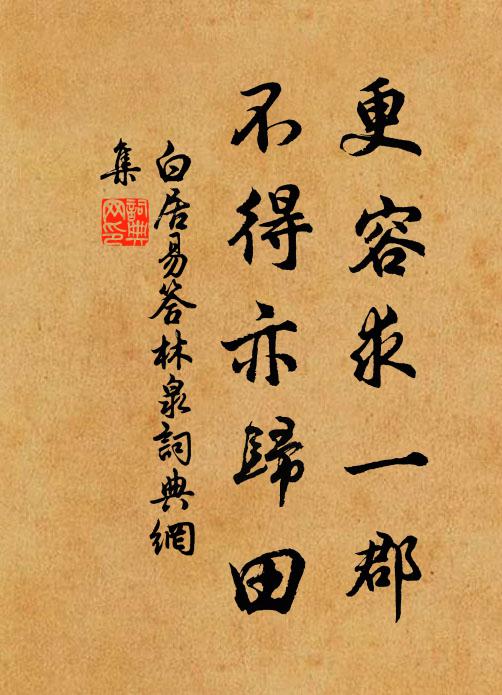 更容求一郡
不得亦歸田
白居易答林泉詞典網
集
詞典
网印